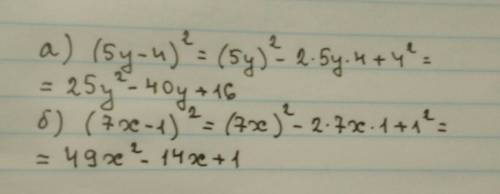 а) (5y-4)² = (5y)² - 2·5y·4 + 4² =
= 25y² - 40y + 16
б) (7x-1)² = (7x)² - 2·7x·1 + 1² =
= 49x² - 14x + 1